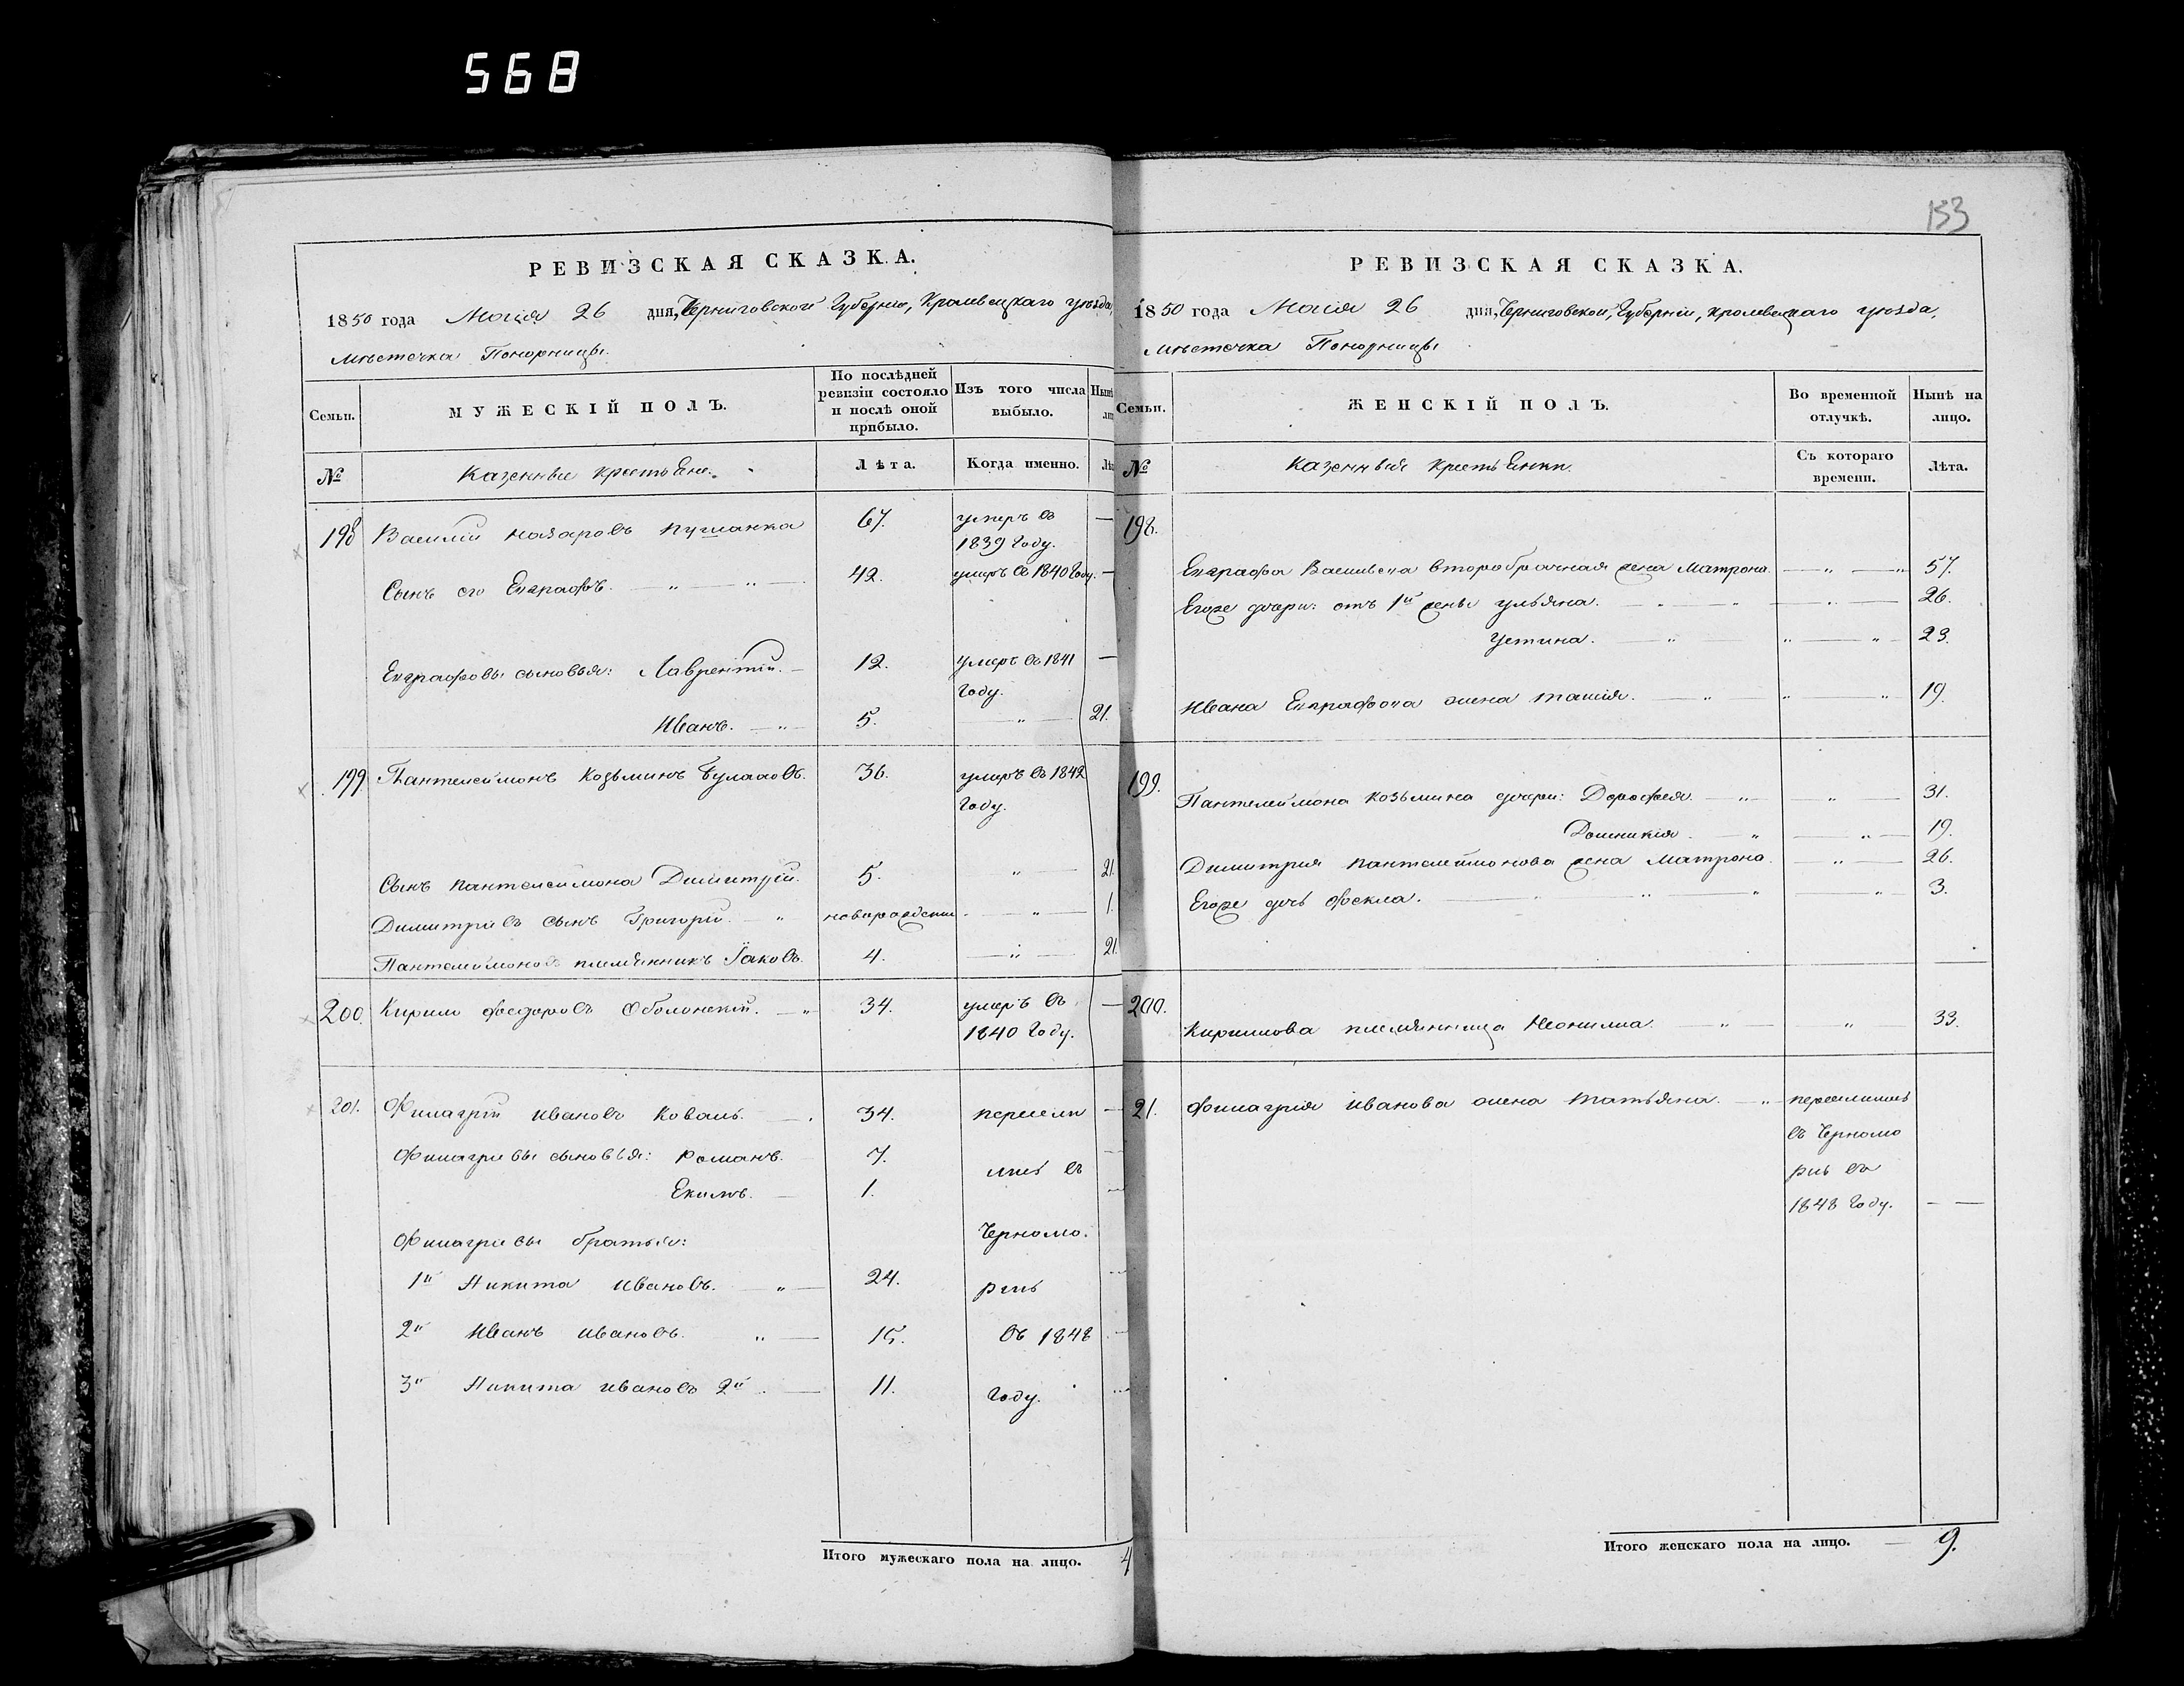 568
РЕВИЗСКАЯ СКАЗКА.
1850 года Маія 26 дня, Черниговской Губерніи, Кролевецкаго уѣзда,
Мѣстечка Понорницы.
Семьи.
МУЖЕСКІЙ ПОЛЪ.
По послѣдней ревизіи состояло и послѣ оной прибыло.
Изъ того числа выбыло.
№
Казенные крестьяне.
Лѣта.
Когда именно.
198 Василій Назаровъ 67. умеръ въ
1839 году.
Сынъ его Евграфъ. 42. умеръ въ 1840 году.
Евграфовы сыновья: Лаврентій. 12. умеръ въ 1841
году.
Иванъ. 5. 21.
199 Пантелеймонъ Козьминъ 36. умеръ въ 1842
году.
Сынъ Пантелеймона Димитрій. 5. 21
Димитріевъ сынъ Григорій. новорожденн. 1.
Пантелеймоновъ племянникъ Іаковъ. 4. 21
200. Кирило Федоровъ Оболонскій. 34. умеръ въ
1840 году.
201. Филагрій Ивановъ Коваль. 34. пересели
Филагріевы сыновья: Романъ. 7. лись въ
Екимъ. 1.
Филагріевы братья: Черномо.
1й Никита Ивановъ. 24. рію
2й Иванъ Ивановъ. 15. въ 1848
3й Никита Ивановъ 2й. 11. году.
Итого мужескаго пола на лицо. 4
153
РЕВИЗСКАЯ СКАЗКА.
1850 года Маія 26 дня, Черниговской, Губерніи, Кролевецкаго уѣзда,
Мѣстечка Понорницы
Семьи.
ЖЕНСКІЙ ПОЛЪ.
Во временной отлучкѣ.
Нынѣ на лицо.
№
Казенныя крестьянки.
Съ котораго времени.
Лѣта.
198.
Евграфа Васильева второбрачная жена Матрона. 57.
Егоже дочери: отъ 1й жены Ульяна. 26.
Устина. 23.
Ивана Евграфова жена 19.
199.
Пантелеймона Козьмина дочери: Дорофея. 31.
Домникія. 19.
Димитрія Пантелеймонова жена Матрона. 26.
Егоже дочь Фекла. 3.
200.
Кирилова племянница Неонилла. 33.
21. Филагрія Иванова жена Татьяна. переселились
въ Черномо
рію въ
1848 году.
Итого женскаго пола на лицо. 9.